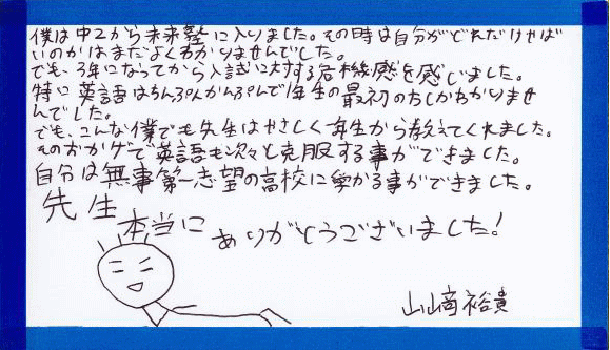 僕は中2から未来塾に入りました。その時は自分がどれだけやば
いのかはまだよくわかりませんでした。
でも、3年になってから入試に対する危機感を感じました。
特に英語はちんぷんかんぷんで1年生の最初のたしかわかりませ
んでした。
でも、こんな僕でも先生はやさしく1年生から教えてくれました。
そのおかげで英語も次々と克服する事ができました。
自分は無事第一志望の高校に受かる事ができました。
先生
本当に
ありがとうございました!
山崎裕貴